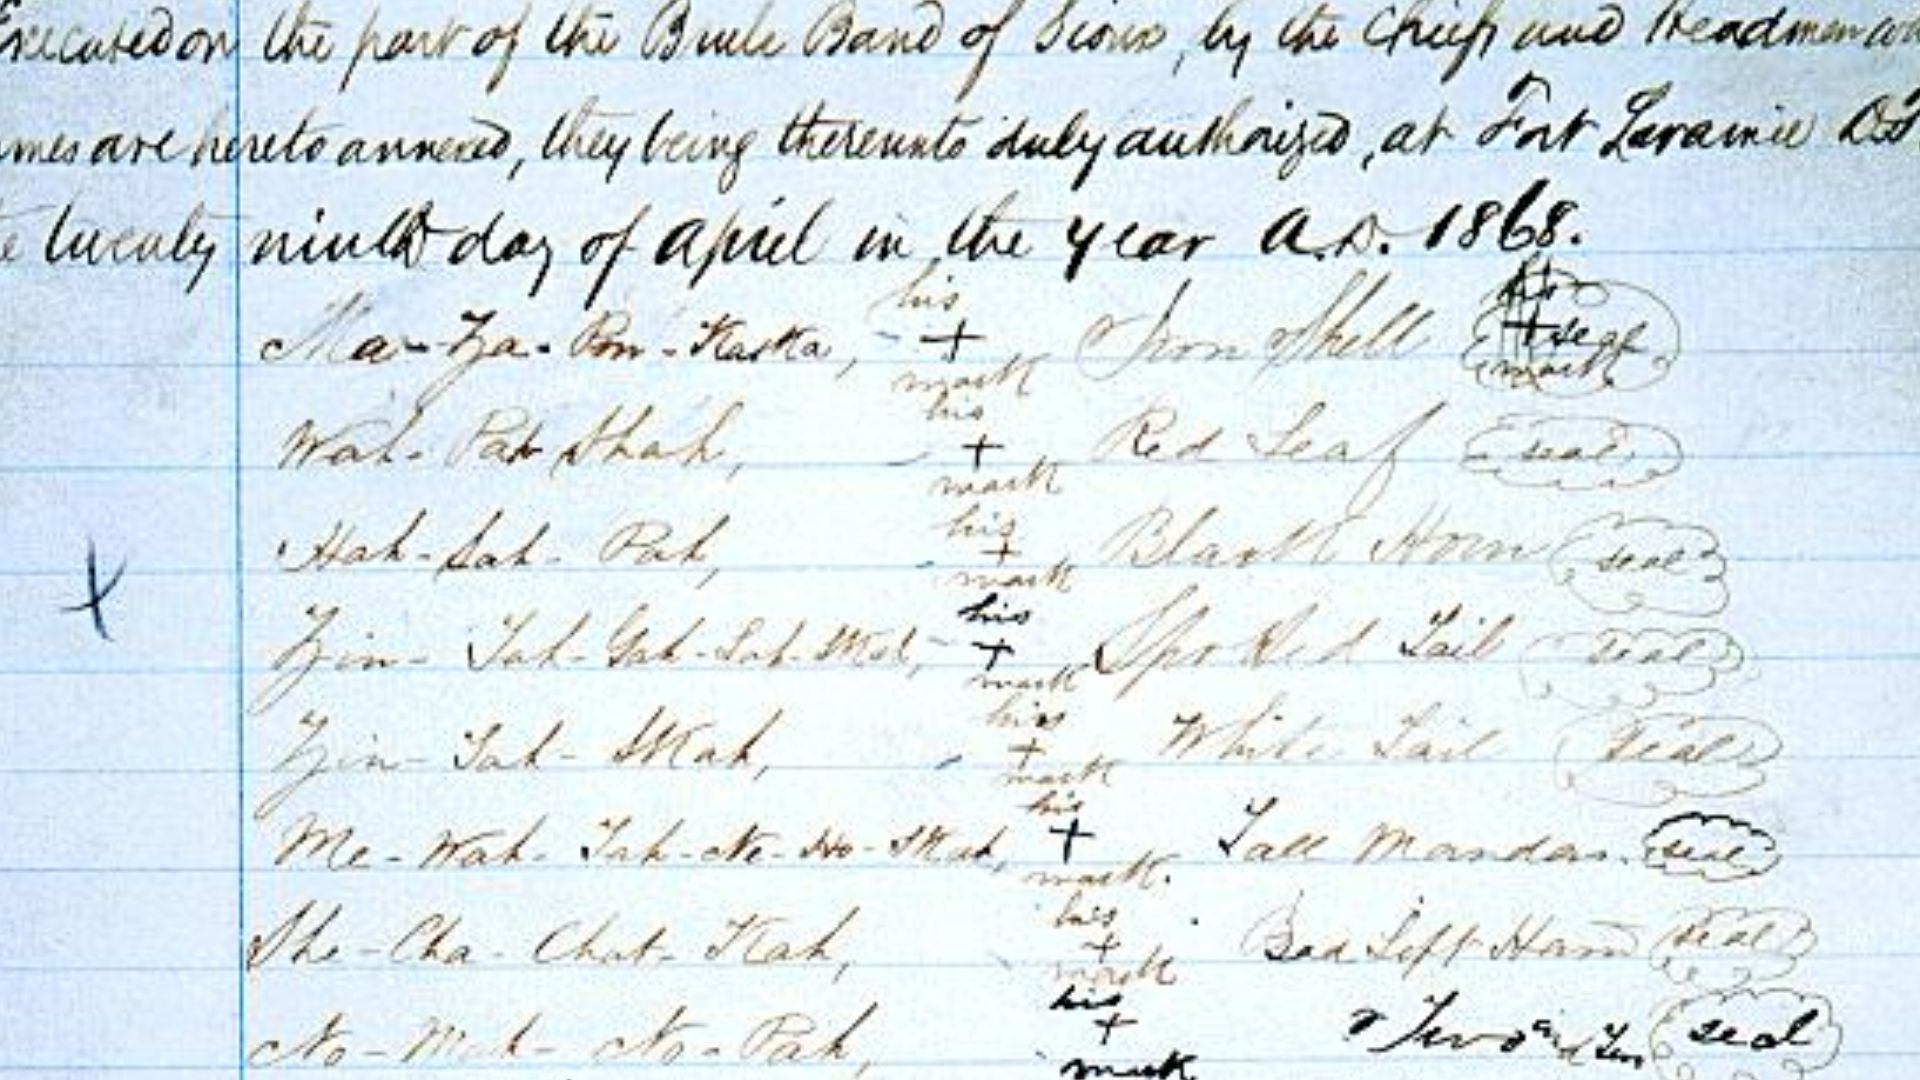 Executed on the part of the Brule Band of Sioux, by the Chiefs and Headmen
are hereto annexed, they being thereunto duly authorized, at Fort Laramie D.T.
twenty ninth day of April in the year A.D. 1868.
Ma-Za-Pon-Kaska, his + mark Iron Shell his + mark seal
Wah-Pat-Shah, his + mark Red Leaf seal
Hah-Sah-Pah, his + mark Black Horn seal
Zin-Tah-Gah-Lat-Skah, his + mark Spotted Tail seal
Zin-Tah-Skah, his + mark White Tail seal
Me-Wah-Tah-Ne-Ho-Skah, his + mark. Tall Mandan. seal
She-Cha-Chat-Kah, his + mark Bad Left Hand seal
No-Mah-No-Pah, his + mark Two and Two seal